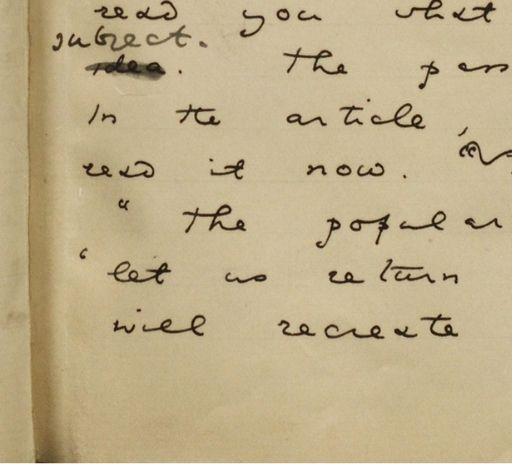 read you what
subject.
idea. The pass
In the article,
read it now.
" The popular
' let us return
will recreate